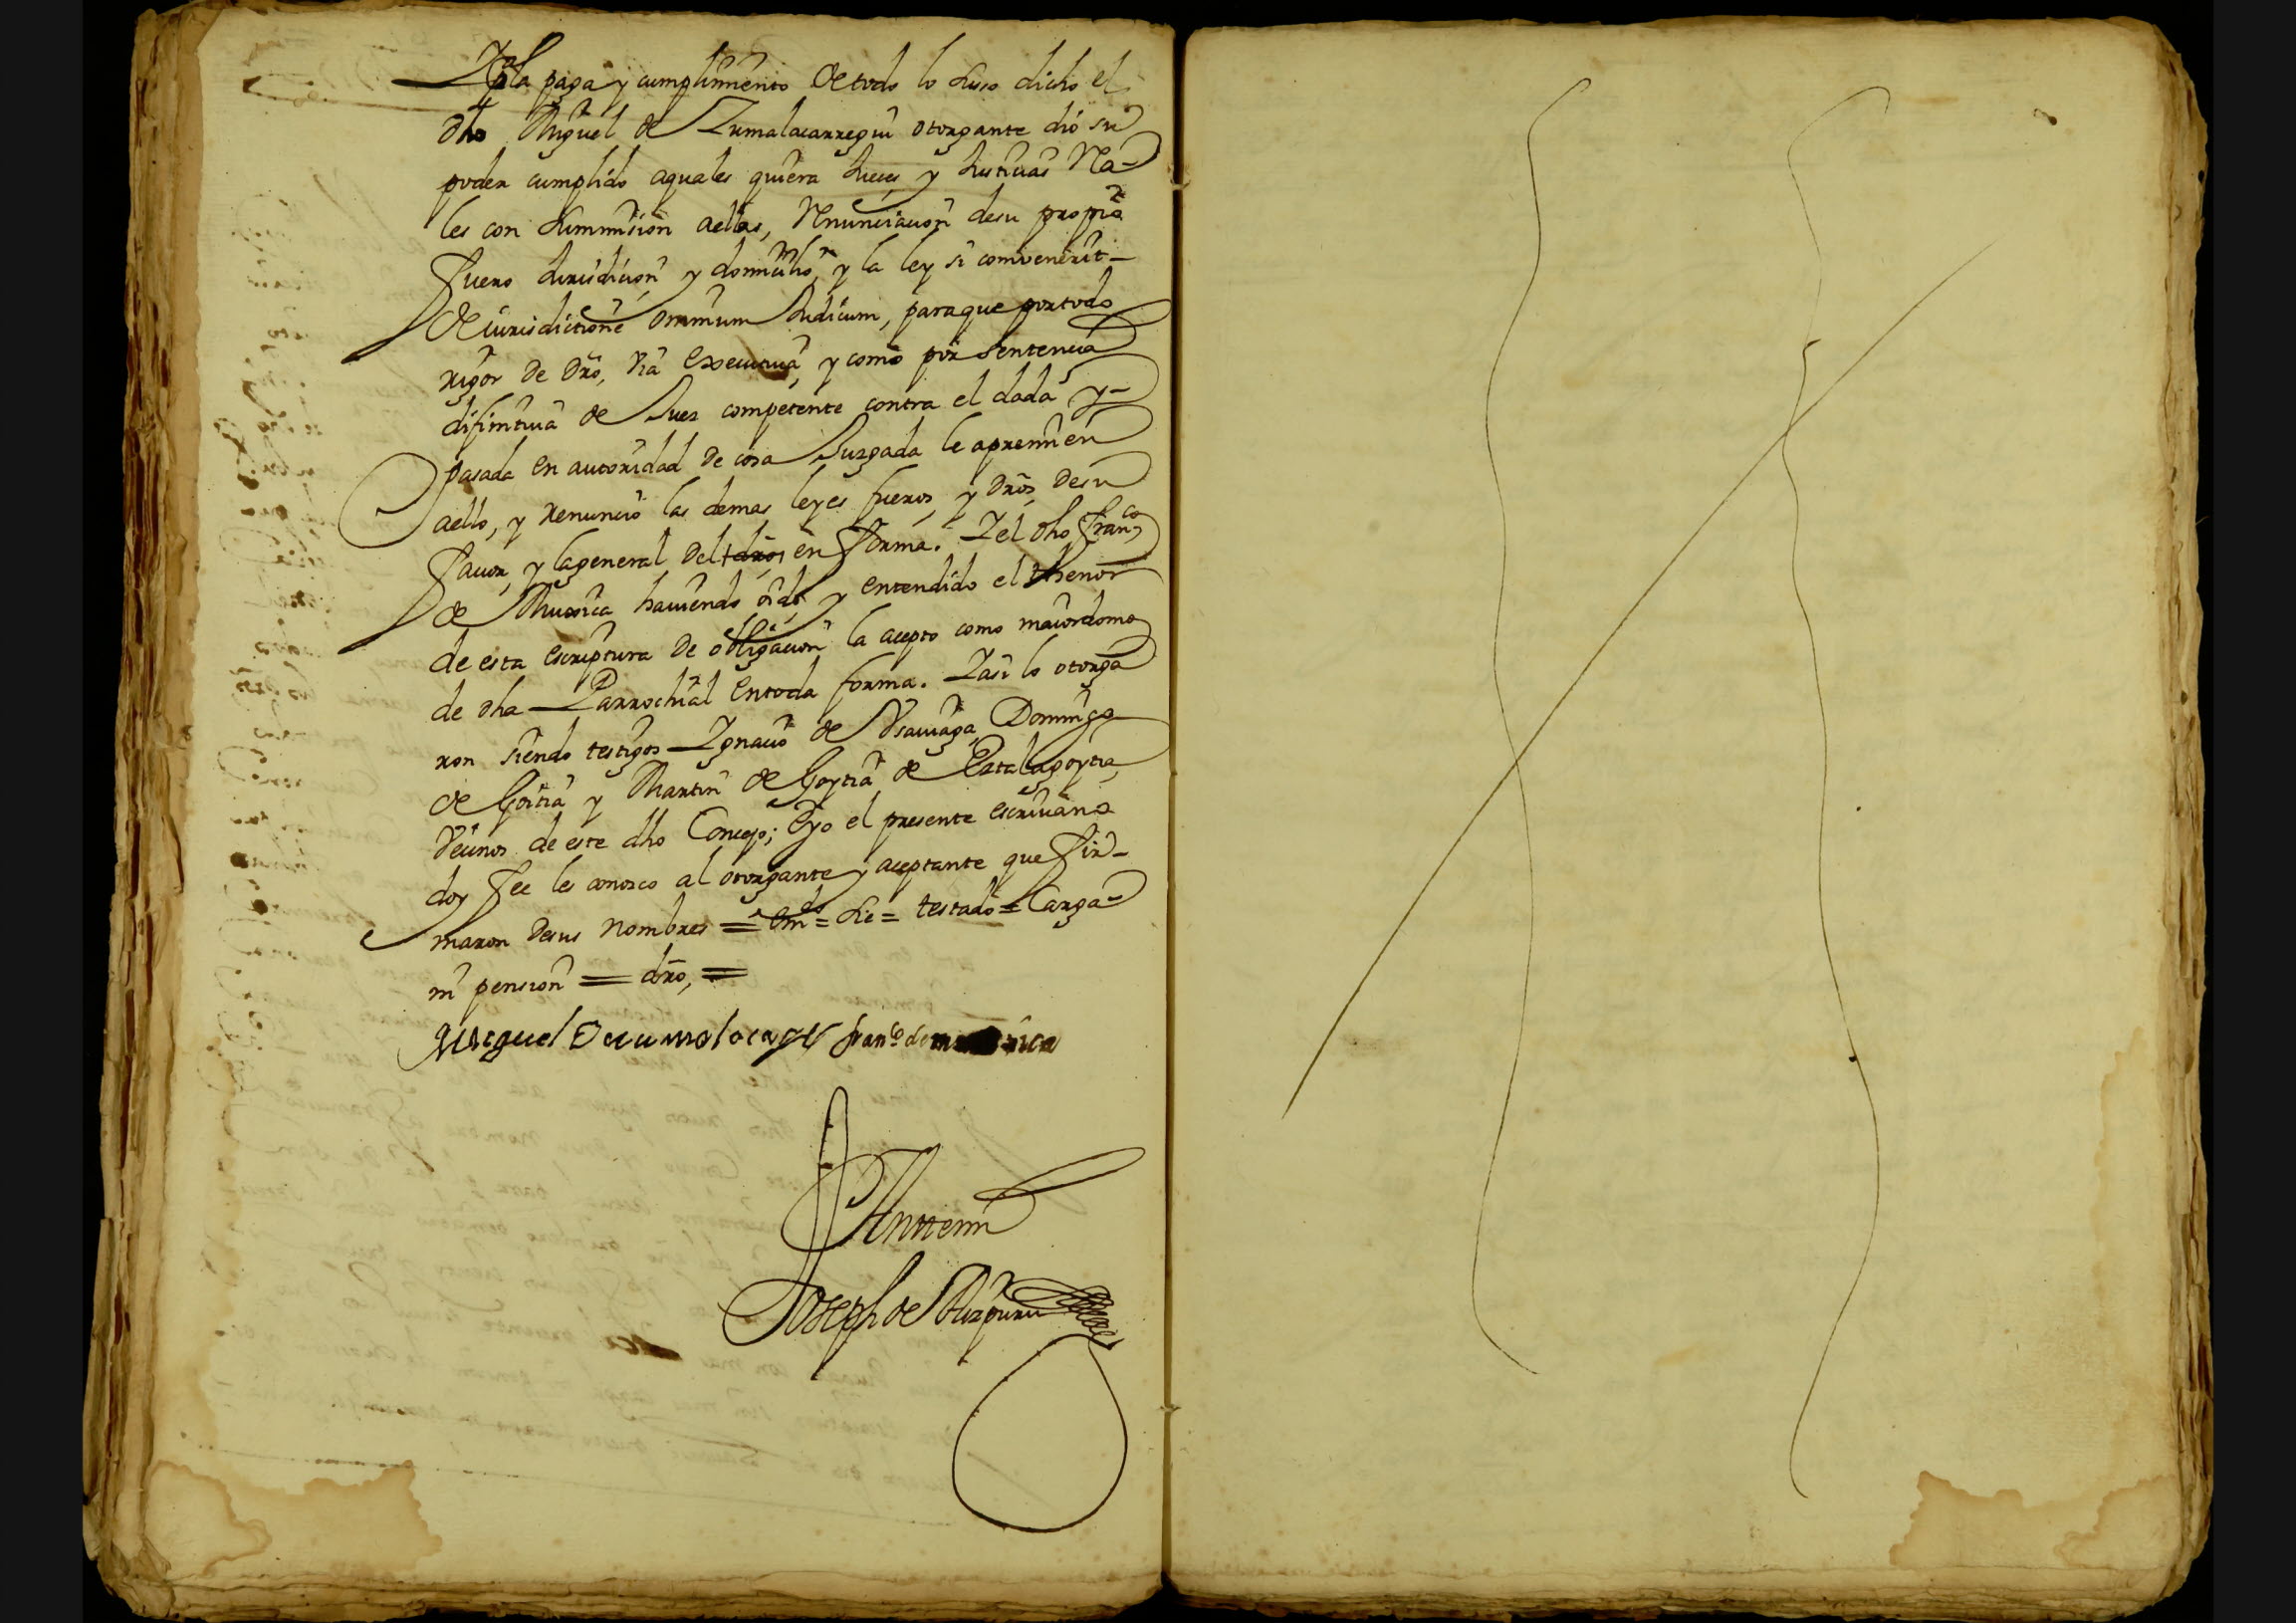 Y a la paga y cumplimiento de todo lo suso dicho el
dho Miguel de Zumalacarregui otorgante dio su
poder cumplido a quales quiera Jueces, y Justicias Rea-
les con summision a ellas, Renunciacion de su propio
fuero Jurisdicion y domicilio, y la ley si combenerit
de iurisdictione omnium Judicum, para que por todo
rigor de dro, via executiva, y como por sentencia
difinitiva de Juez competente contra el dada y
pasada en autoridad de cosa Juzgada le apremien
a ello, y renuncio las demas leyes fueros, y dros, de su
favor, y la general del dro, en forma. Y el dho Franco
de Muxica haviendo oido, y entendido el thenor
de esta escriptura de obligacion la acepto como maiordomo
de dha Parrochial en toda forma. Y asi lo otorga
ron siendo testigos Ygnacio de Usaviaga, Domingo
de Goitia y Martin de Goytia de
vecinos de este dho Concejo; E yo el presente escrivano
doy fee les conosco al otorgante y aceptante que fir-
maron de sus nombres = emdo = Sie = testado = Carga
ni pension = dro, =
Miguel De Franco de
Ante mi
Joseph de